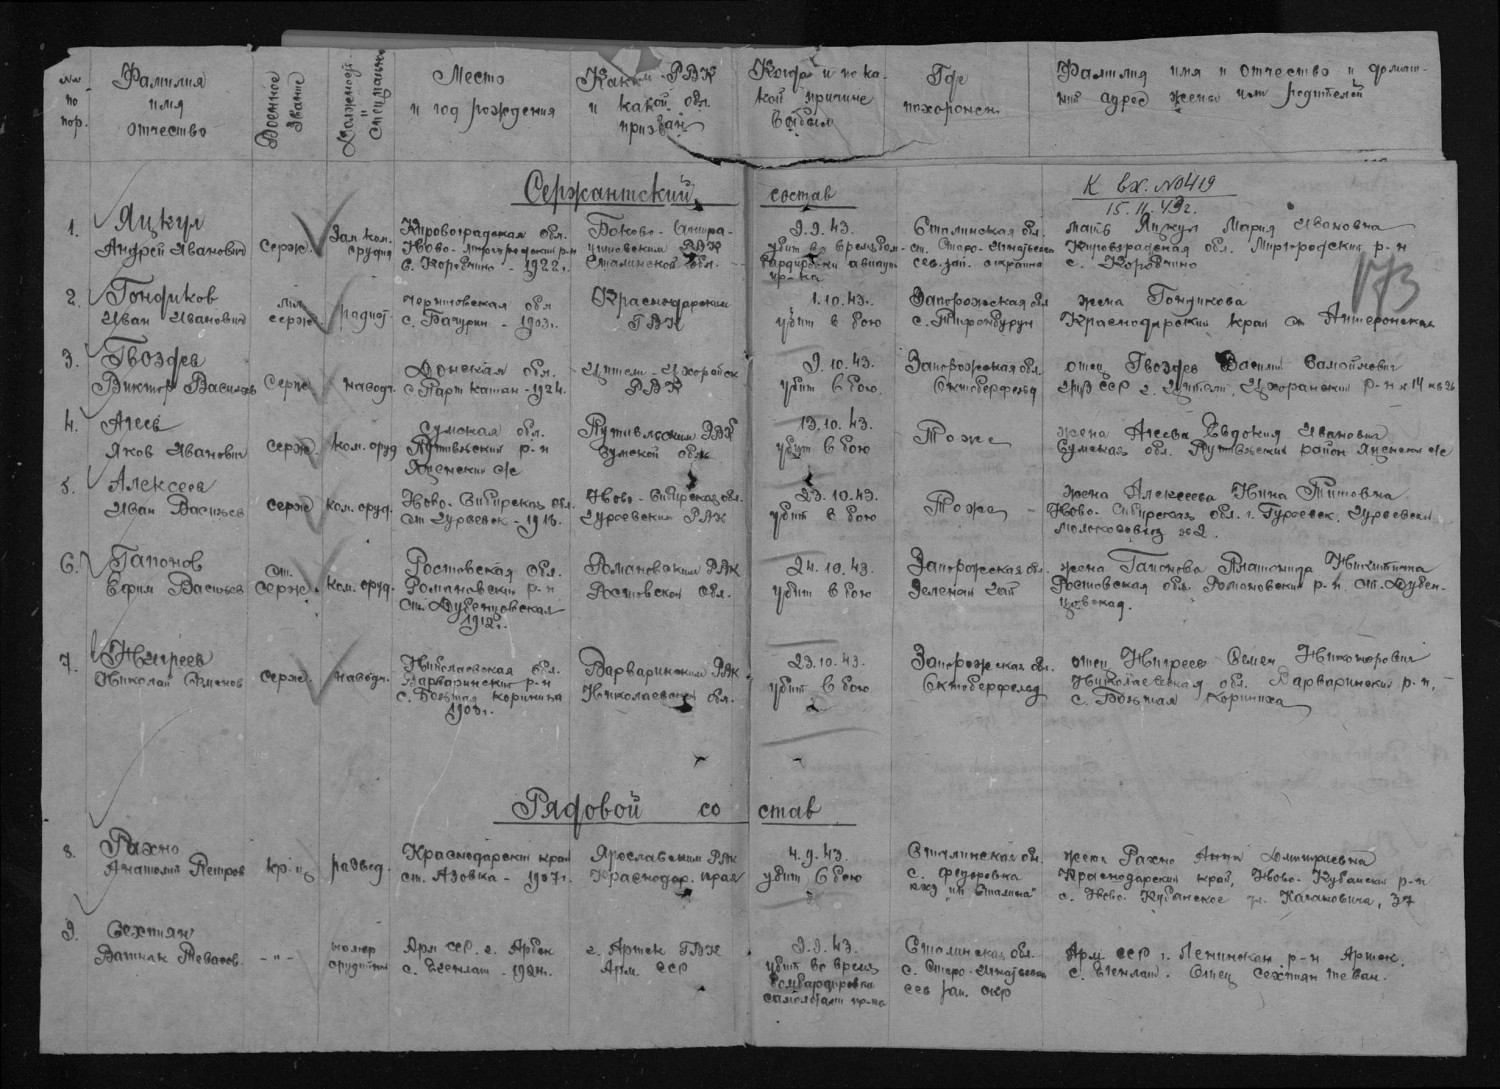 №№ по пор.
Фамилия имя отчество
Военное звание
Должность и специальн.
Место и год рождения
Каким РВК и какой обл. призван
Когда и по какой причине выбыл
Где похоронен
Фамилия имя и отчество и домаш-
ний адрес жены или родителей
К вх. №0419
15.11.43г.
173
Сержантский состав
1. Яцкул
Андрей Иванович
серж.
Зам. ком. орудия
Кировоградская обл.
Ново-Миргородский р-н
с. Коробчино - 1922г.
Боково-Антра-
цитовским РВК
Сталинской обл.
9.9.43.
убит во время бом-
бардировки авиаци
пр-ка
Сталинская обл.
ст. Старо-Игнатьевка
сев. зап. окраина
мать Яцкул Мария Ивановна
Кировоградская обл. Миргородский р-н
с. Коробчино
2. Гондиков
Иван Иванович
мл. серж
радист.
Черниговская обл
с. Бачурин - 1903г.
Краснодарским
ГВК
1.10.43.
убит в бою
Запорожская обл
с. Тифонбурун
жена Гондикова
Краснодарский край
3. Гвоздев
Виктор Васильев
Серж
наводч.
обл.
- 1924.
РВК
9.10.43.
убит в бою.
Запорожская обл.
Октоберфельд
отец Гвоздев Василий
4. Агеев
Яков Иванович
серж.
ком. оруд
Сумская обл.
Путивльский р-н
Яценский с/с
Путивльским РВК
Сумской обл.
13.10.43.
убит в бою
То же
жена Агеева Евдокия Ивановна
Сумская обл. Путивльский район Яценский с/с
5. Алексеев
Иван Васильев
серж
ком. оруд.
Ново-Сибирская обл.
- 1913.
Ново-Сибирская обл.
Гурьевским РВК
23.10.43.
убит в бою
То же
жена Алексеева Нина Титовна
Ново-Сибирская обл. г. Гурьевск, Гурьевский
№2.
6. Гапонов
Ефим Васильев
ст. серж.
ком. оруд.
Ростовская обл.
Романовский р-н
ст. Дубенцовская
1912г.
Романовским РВК
Ростовской обл.
24.10.43.
убит в бою
Запорожская обл.
Зеленый Гай
жена Гапонова Никитична
Ростовская обл. Романовский р-н. ст. Дубен-
цовская.
7. Нигреев
Николай Семенов
серж.
наводч.
Николаевская обл.
Варваринский р-н
с. Большая Корениха
1903г.
Варваринским РВК
Николаевской обл.
23.10.43.
убит в бою
Запорожская обл.
Октоберфельд
отец Нигреев Семен Никонорович
Николаевская обл. Варваринский р-н,
с. Большая Корениха
Рядовой состав
8. Рахно
Анатолий Петров
кр-ц
развед.
Краснодарский край
ст. Азовка - 1907г.
Ярославским РВК
Краснодар. края
4.9.43.
убит в бою
Сталинская обл.
с. Федоровка
к-хз "им Сталина"
жена Рахно Анна Дмитриевна
Краснодарский край, Ново-Кубанский р-н
с. Ново-Кубанское ул. Кагановича, 37
9. Сехтян
Вагнак Тевасов.
-"-
номер орудийный
Арм. ССР. г. Артек
- 1924.
г. Артек ГВК
Арм. ССР
9.9.43.
убит во время
бомбардировки
самолётами пр-ка
Сталинская обл.
с. Старо-Игнатьевка
сев. зап. окр
Арм. ССР г. Ленинакан р-н Артек.
Отец Сехтян Теван.